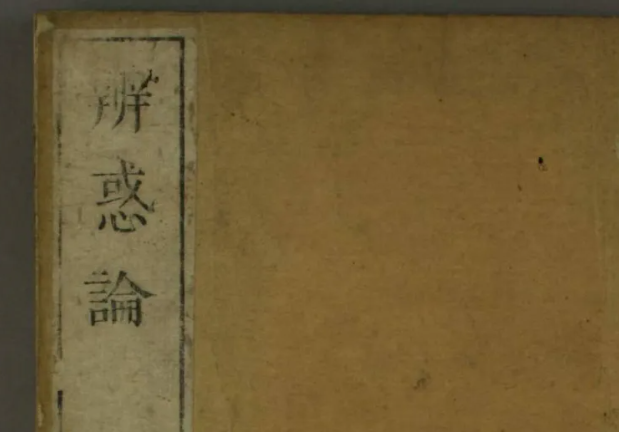 辨惑論